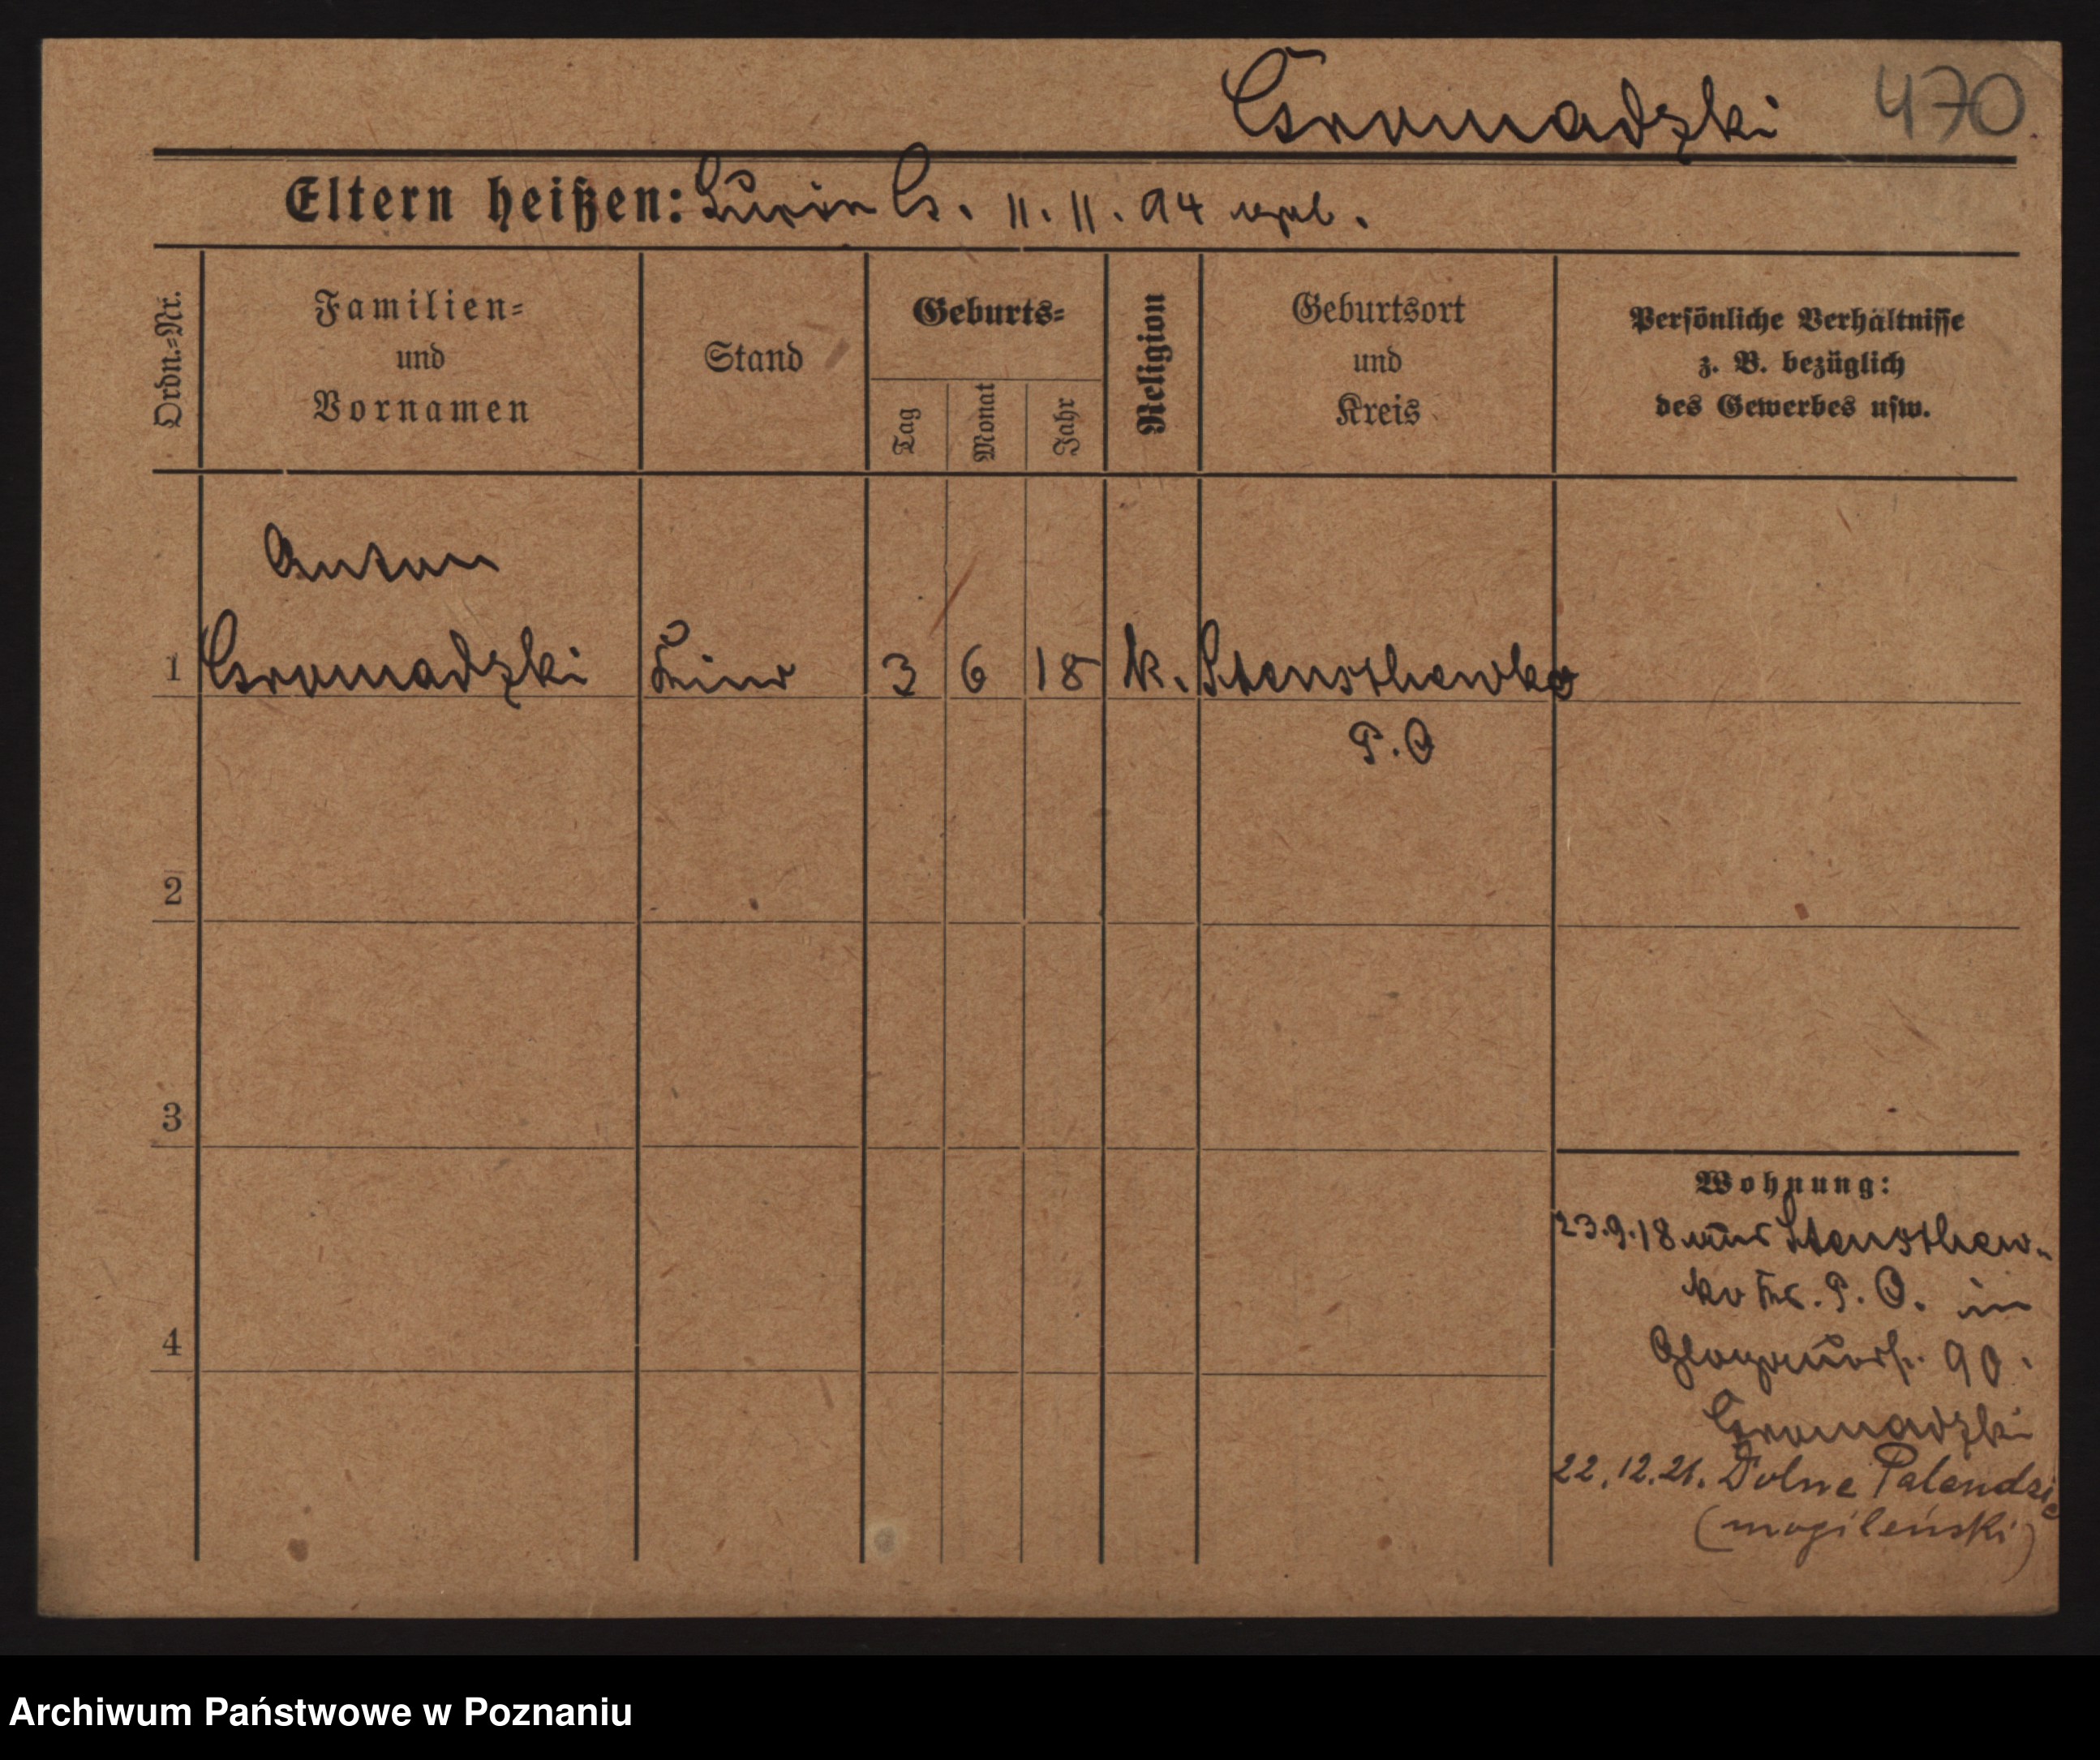 Gromadzki 470
Eltern heißen: G. 11. 11. 94
Ordn.=Nr.
Familien=
und
Vornamen
Stand
Geburts=
Tag
Monat
Jahr
Religion
Geburtsort
und
Kreis
Persönliche Verhältnisse
z. B. bezüglich
des Gewerbes usw.
Anton
1 Gromadzki Kind 3 6 18 k. Stenschewko
P. O
2
3
4
Wohnung:
23.9.18 aus Stenschew-
ko Kr. P. O. in
Glogauerstr. 90.
Gromadzki
22.12.21. Dolne Palendzie
(mogileński)
Archiwum Państwowe w Poznaniu